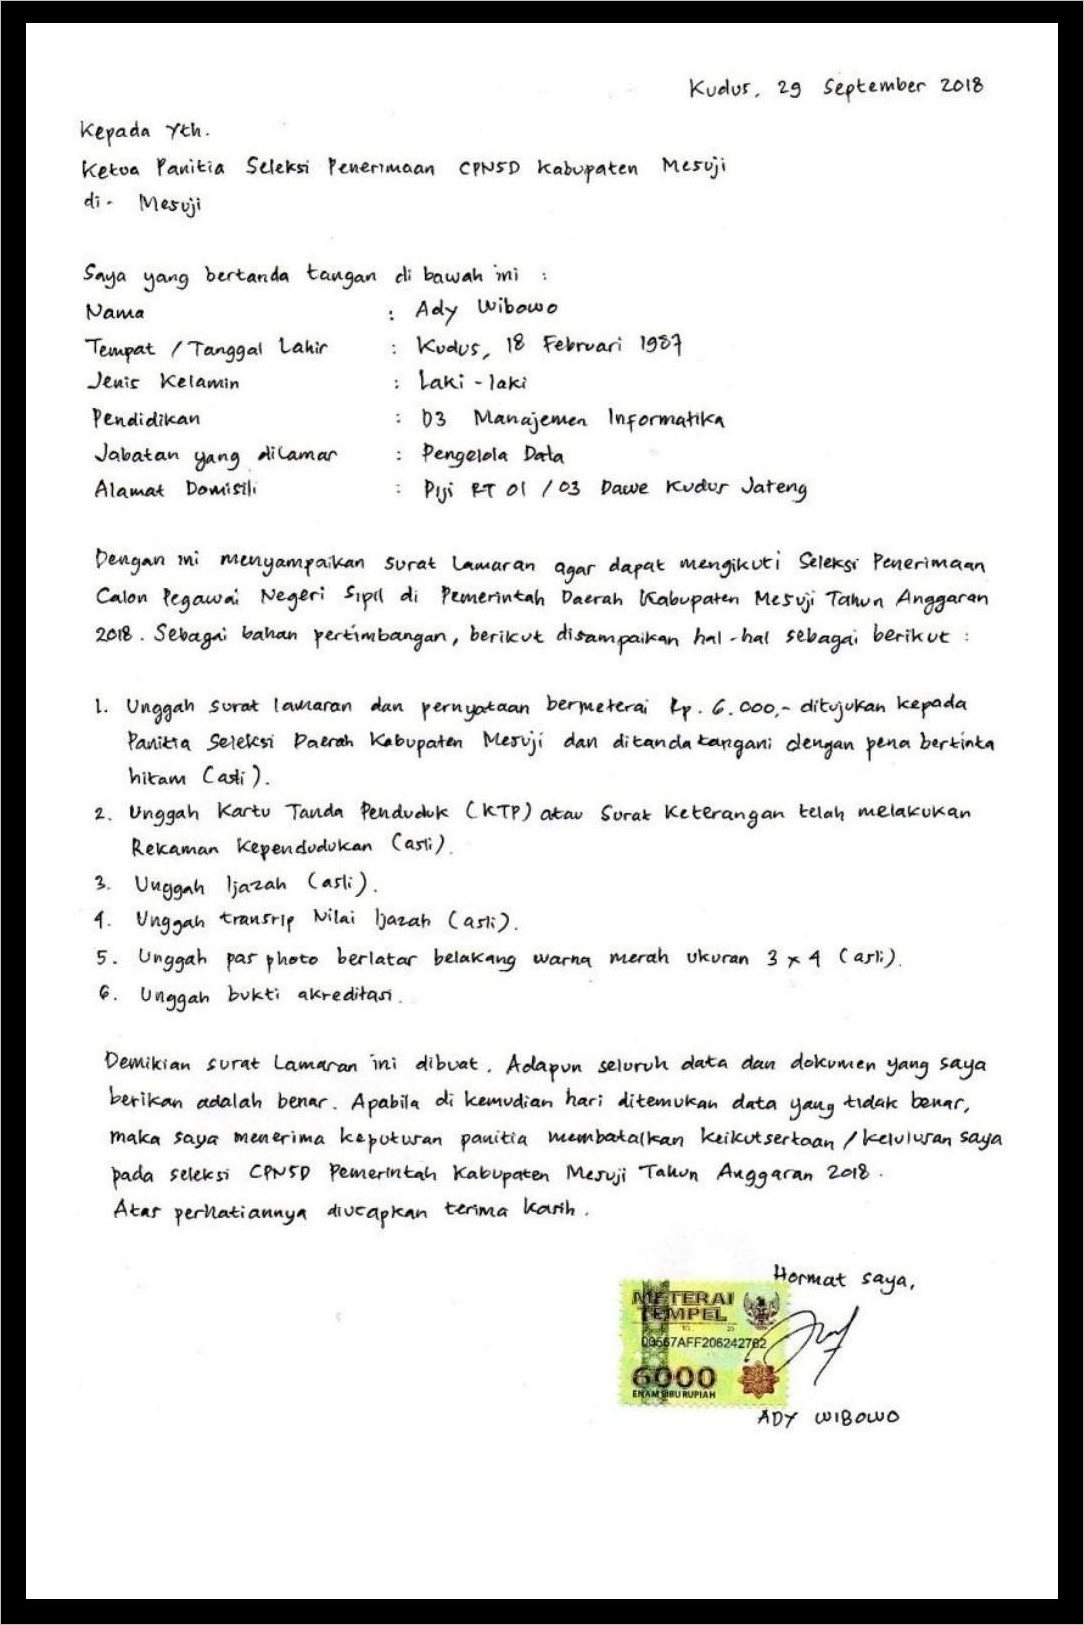 Kudus, 29 September 2018
Kepada Yth.
Ketua Panitia Seleksi Penerimaan CPNSD Kabupaten Mesuji
di - Mesuji
Saya yang bertanda tangan di bawah ini :
Nama : Ady Wibowo
Tempat / Tanggal Lahir : Kudus, 18 Februari 1987
Jenis Kelamin : Laki - laki
Pendidikan : D3 Manajemen Informatika
Jabatan yang dilamar : Pengelola Data
Alamat Domisili : Piji RT 01 / 03 Dawe Kudus Jateng
Dengan ini menyampaikan surat lamaran agar dapat mengikuti Seleksi Penerimaan
Calon Pegawai Negeri Sipil di Pemerintah Daerah Kabupaten Mesuji Tahun Anggaran
2018. Sebagai bahan pertimbangan, berikut disampaikan hal - hal sebagai berikut :
1. Unggah surat lamaran dan pernyataan bermeterai Rp. 6.000,- ditujukan kepada
Panitia Seleksi Daerah Kabupaten Mesuji dan ditandatangani dengan pena bertinta
hitam (asli).
2. Unggah Kartu Tanda Penduduk (KTP) atau Surat Keterangan telah melakukan
Rekaman Kependudukan (asli).
3. Unggah Ijazah (asli).
4. Unggah transrip Nilai Ijazah (asli).
5. Unggah pas photo berlatar belakang warna merah ukuran 3 x 4 (asli).
6. Unggah bukti akreditasi.
Demikian surat lamaran ini dibuat. Adapun seluruh data dan dokumen yang saya
berikan adalah benar. Apabila di kemudian hari ditemukan data yang tidak benar,
maka saya menerima keputusan panitia membatalkan keikutsertaan / kelulusan saya
pada seleksi CPNSD Pemerintah Kabupaten Mesuji Tahun Anggaran 2018.
Atas perhatiannya diucapkan terima kasih.
Hormat saya,
METERAI
TEMPEL
00567AFF206242782
6000
ENAM RIBU RUPIAH
ADY WIBOWO